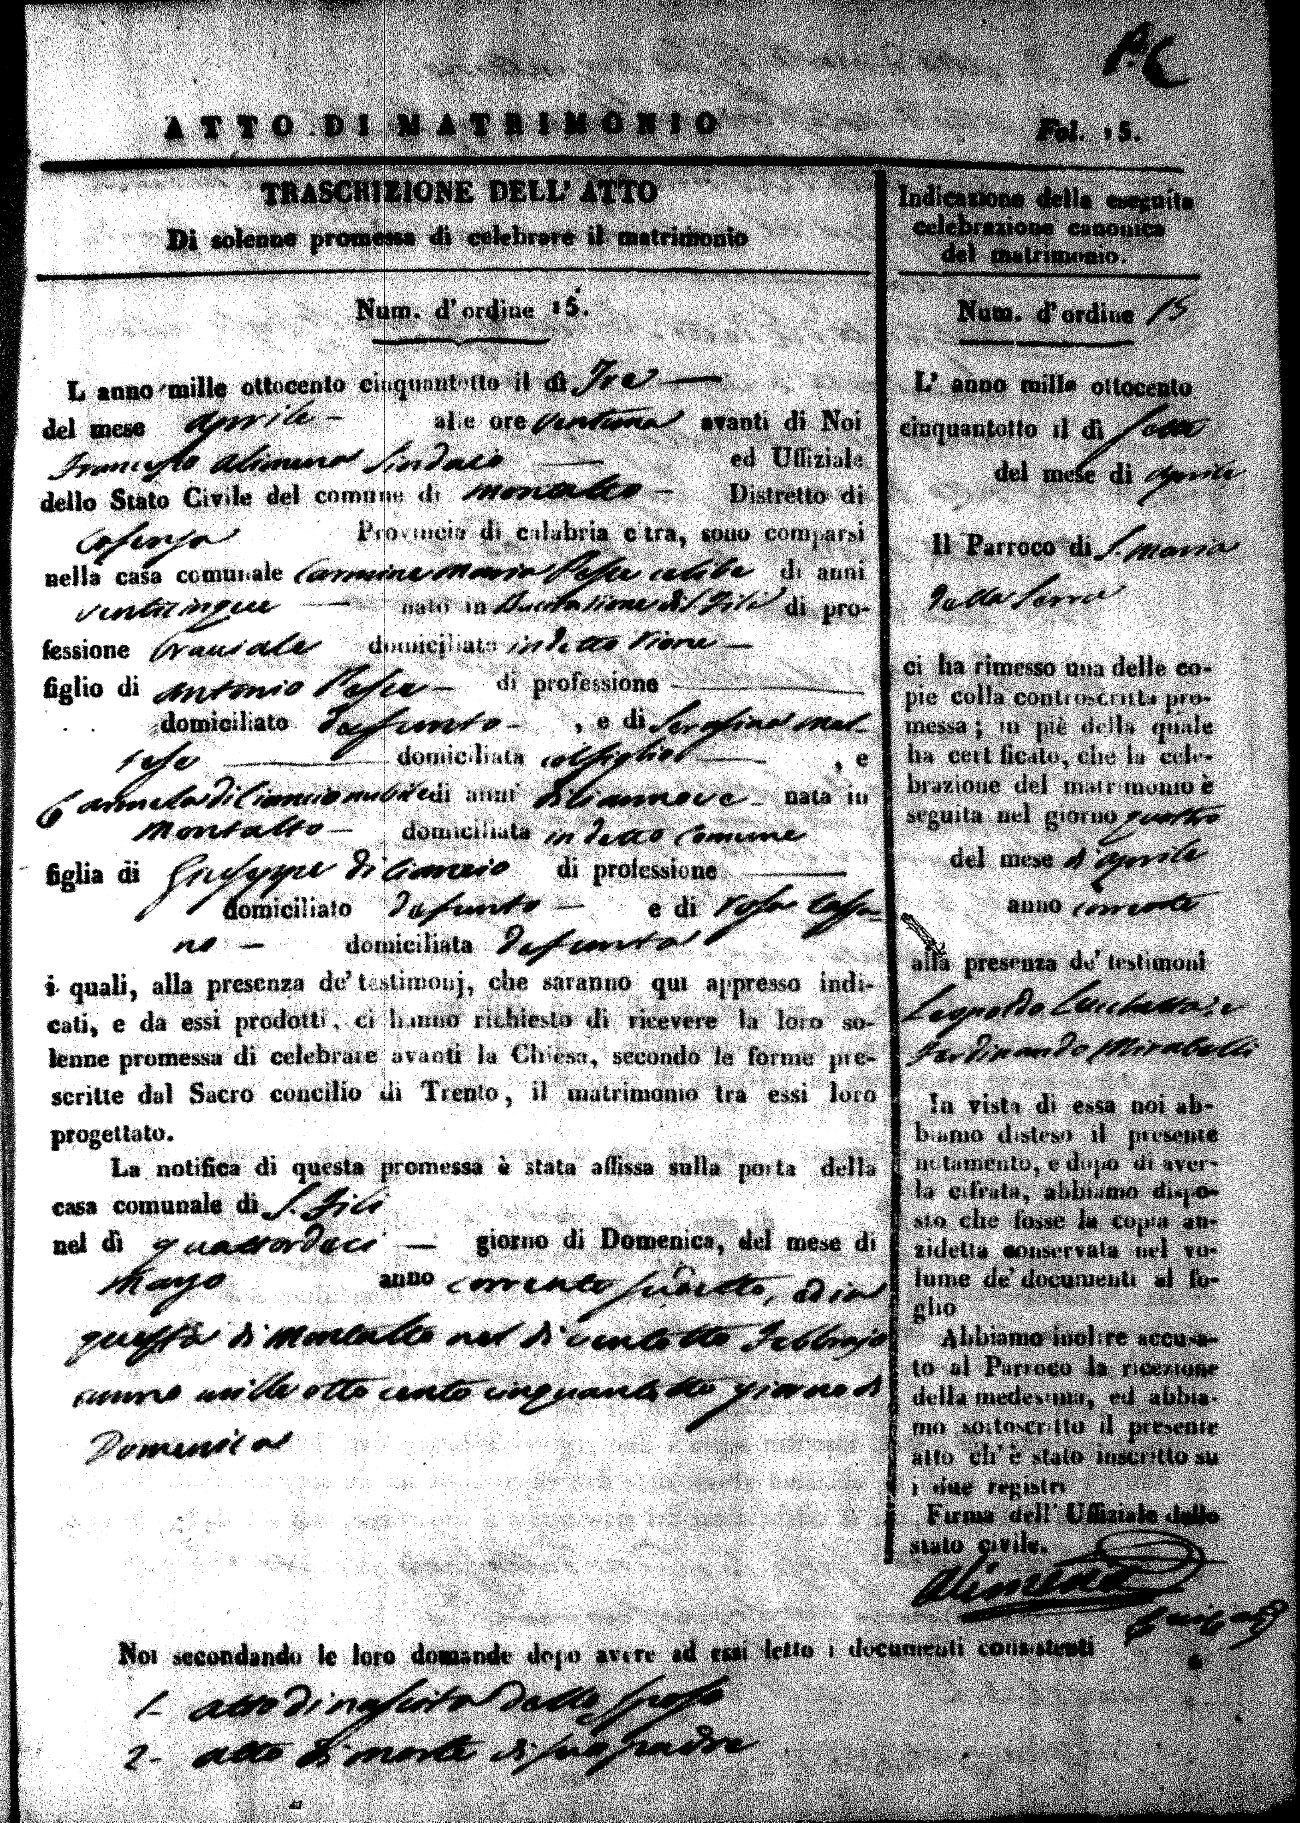 P. C
ATTO DI MATRIMONIO
Fol. 15.
TRASCRIZIONE DELL' ATTO
Di solenne promessa di celebrare il matrimonio
Num. d'ordine 15.
L anno mille ottocento cinquantotto il dì Tre
del mese aprile alle ore ventuna avanti di Noi
Francesco Alimena Sindaco ed Uffiziale
dello Stato Civile del comune di Montalto Distretto di
Cosenza Provincia di calabria citra, sono comparsi
nella casa comunale Carmine Maria Pesce celibe di anni
venticinque nato in S. Fili di pro-
fessione domiciliato in detto
figlio di Antonio Pesce di professione
domiciliato defunto , e di Serafina
domiciliata col figlio , e
Carmela di Ciancio nubile di anni diciannove nata in
Montalto domiciliata in detto Comune
figlia di Giuseppe di Ciancio di professione
domiciliato defunto e di Rosa Cassa=
no domiciliata defunta
i quali, alla presenza de' testimonj, che saranno qui appresso indi-
cati, e da essi prodotti, ci hanno richiesto di ricevere la loro so-
lenne promessa di celebrare avanti la Chiesa, secondo le forme pre-
scritte dal Sacro concilio di Trento, il matrimonio tra essi loro
progettato.
La notifica di questa promessa è stata affissa sulla porta della
casa comunale di S. Fili
nel dì quattordeci giorno di Domenica, del mese di
anno corrente suddetto, ed in
questa di Montalto nel dì ventotto Febbrajo
anno mille otto cento cinquantotto giorno di
Domenica
Indicazione della eseguita
celebrazione canonica
del matrimonio.
Num. d'ordine 15
L' anno mille ottocento
cinquantotto il dì
del mese di aprile
Il Parroco di S. Maria
della Serra
ci ha rimesso una delle co-
pie colla controscritta pro-
messa; in piè della quale
ha certificato, che la cele-
brazione del matrimonio è
seguita nel giorno quattro
del mese d'aprile
anno corrente
alla presenza de' testimoni
Leopoldo
Ferdinando Mirabelli
In vista di essa noi ab-
biamo disteso il presente
notamento, e dopo di aver-
la cifrata, abbiamo dispo-
sto che fosse la copia an-
zidetta conservata nel vo-
lume de' documenti al fo-
glio
Abbiamo inoltre accusa-
to al Parroco la ricezione
della medesima, ed abbia-
mo sottoscritto il presente
atto ch' è stato inscritto su
i due registri
Firma dell' Uffiziale dello
stato civile.
Alimena
Noi secondando le loro domande dopo avere ad essi letto i documenti consistenti
1- atto di nascita dello sposo
2- atto di morte di suo padre